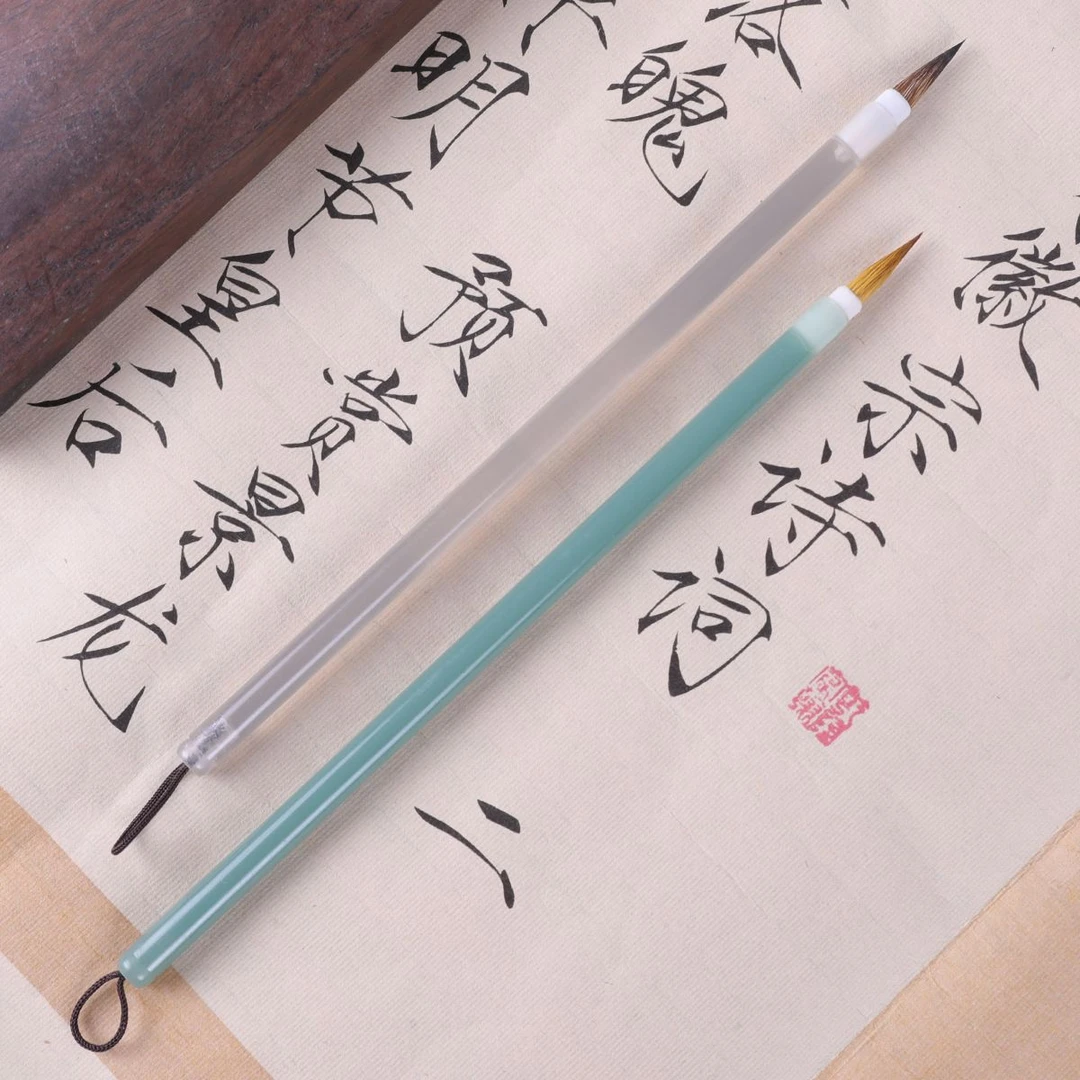 徽宗诗词 二
魄 预赏景龙
明节皇后